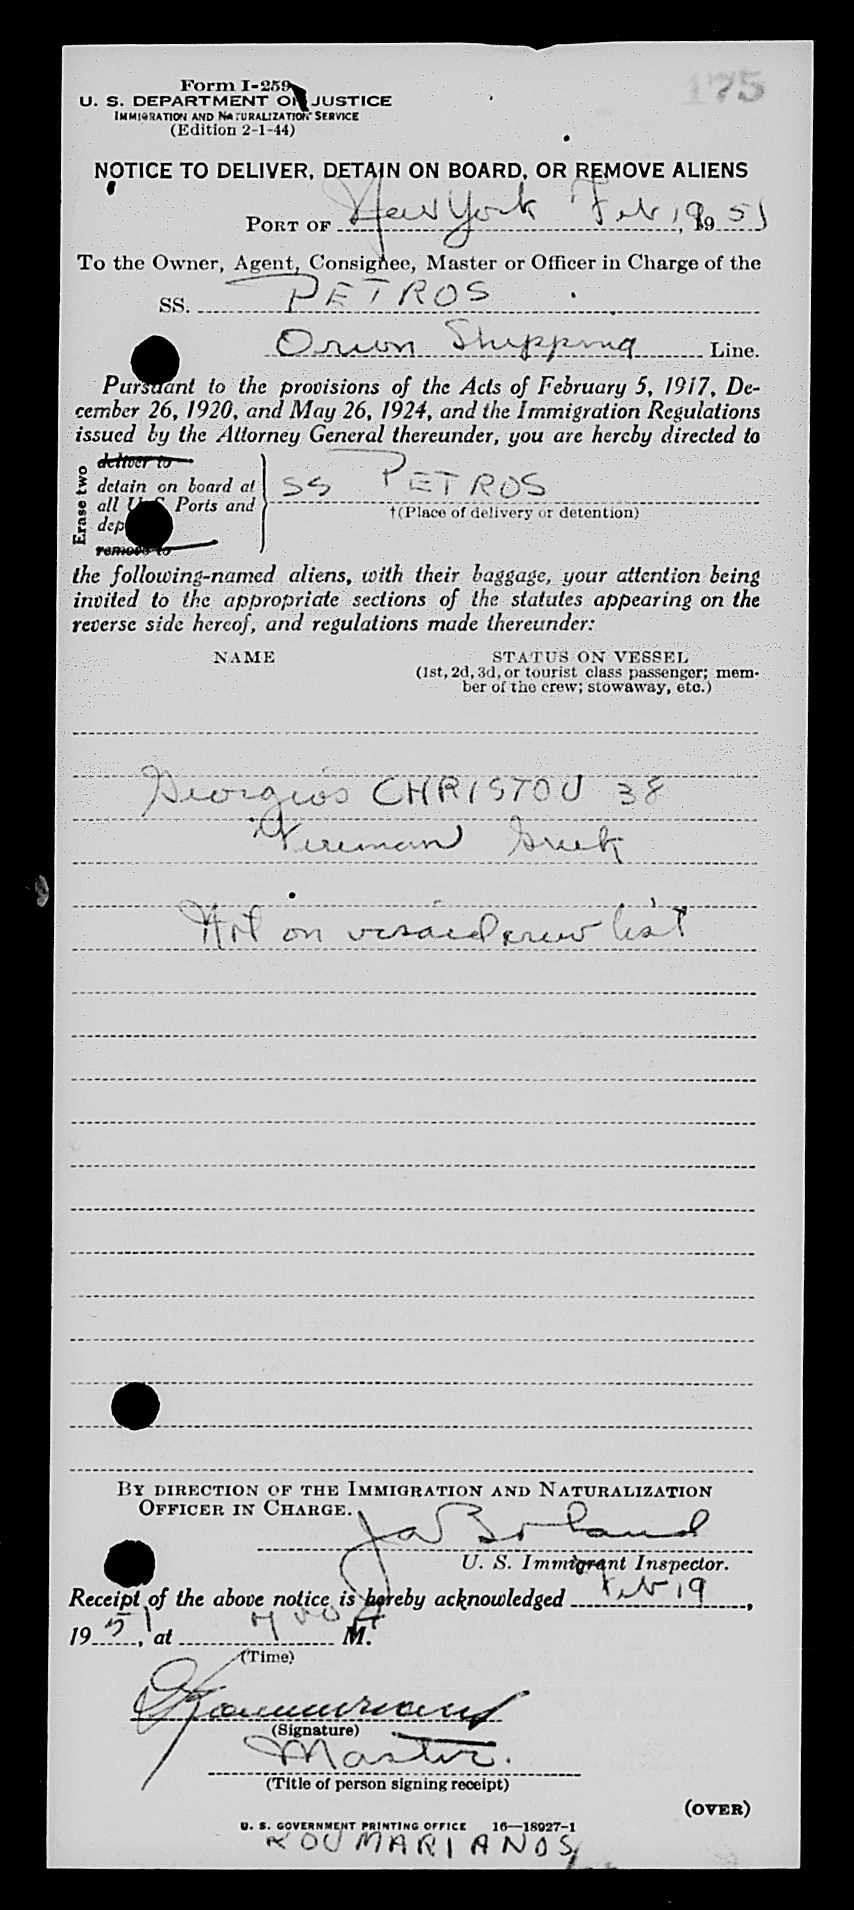 175
Form I-259
U. S. DEPARTMENT OF JUSTICE
IMMIGRATION AND NATURALIZATION SERVICE
(Edition 2-1-44)
NOTICE TO DELIVER, DETAIN ON BOARD, OR REMOVE ALIENS
PORT OF New York Feb 19, 1951
To the Owner, Agent, Consignee, Master or Officer in Charge of the
SS. PETROS
Orion Shipping Line.
Pursuant to the provisions of the Acts of February 5, 1917, De-
cember 26, 1920, and May 26, 1924, and the Immigration Regulations
issued by the Attorney General thereunder, you are hereby directed to
Erase two
deliver to
detain on board at
all U S Ports and
dep
remove to
SS PETROS
†(Place of delivery or detention)
the following-named aliens, with their baggage, your attention being
invited to the appropriate sections of the statutes appearing on the
reverse side hereof, and regulations made thereunder:
NAME STATUS ON VESSEL
(1st, 2d, 3d, or tourist class passenger; mem-
ber of the crew; stowaway, etc.)
Georgios CHRISTOU 38
Fireman Greek
Not on visaed crew list
BY DIRECTION OF THE IMMIGRATION AND NATURALIZATION
OFFICER IN CHARGE.
Ja Borland
U. S. Immigrant Inspector.
Receipt of the above notice is hereby acknowledged Feb 19,
1951, at M.
(Time)
(Signature)
Master.
(Title of person signing receipt)
(OVER)
U. S. GOVERNMENT PRINTING OFFICE 16—18927-1
KOUMARIANOS